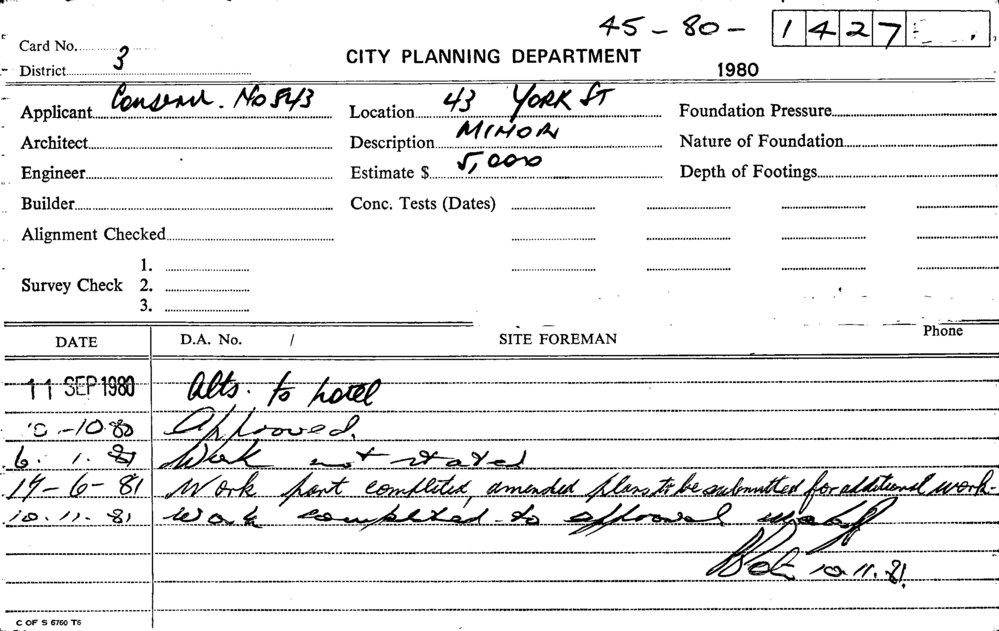 45-80- 1427
Card No.
3
CITY PLANNING DEPARTMENT
District
1980
Applicant No 543 Location 43 YORK ST Foundation Pressure
Architect Description MINOR Nature of Foundation
Engineer Estimate $ 5,000 Depth of Footings
Builder Conc. Tests (Dates)
Alignment Checked
1.
Survey Check 2.
3.
DATE D.A. No. / SITE FOREMAN Phone
11 SEP 1980 Alts. to hotel
-10-80 Approved.
6. 1. 81 Work not stated
17-6-81 Work part completed, amended plans to be submitted for additional work-
10.11.81 work completed to approval
10.11.81.
C OF S 6760 T6